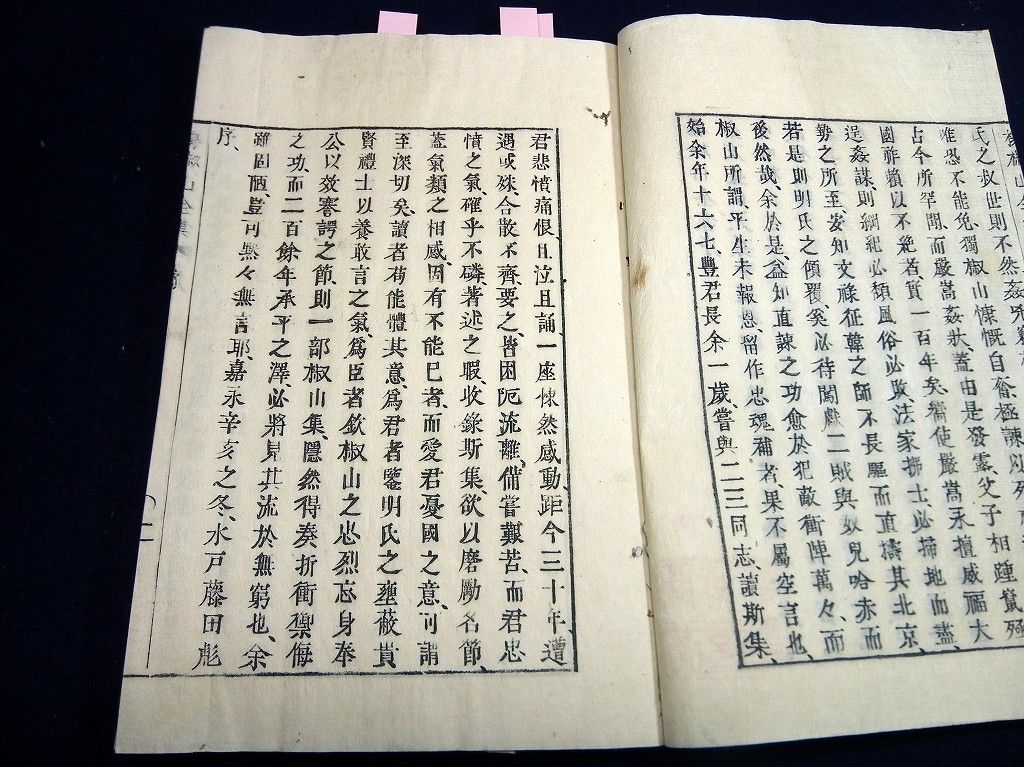 氏之救世則不然姦兇
唯恐不能免獨椒山慷慨自奮極諫以死
占今所罕聞而嚴嵩姦狀蓋由是發露父子相踵竄殛
國祚賴以不絶者實一百年矣嚮使嚴嵩永擅威福大
逞姦謀則綱紀必頽風俗必敗法家拂士必掃地而盡
勢之所至安知文祿征韓之師不長驅而直擣其北京
若是則明氏之傾覆奚必待闖獻二賊與奴兒哈赤而
後然哉余於是益知直諫之功愈於犯敵衝陣萬々而
椒山所謂平生未報恩留作忠魂補者果不屬空言也
始余年十六七豐君長余一歲嘗與二三同志讀斯集
君悲憤痛恨且泣且誦一座悚然感動距今三十年遭
遇或殊合散不齊要之皆困阨流離備嘗艱苦而君忠
憤之氣確乎不磷著述之暇收錄斯集欲以磨勵名節
蓋氣類之相感固有不能已者而愛君憂國之意可謂
至深切矣讀者苟能體其意爲君者鑒明氏之壅蔽貴
賢禮士以養敢言之氣爲臣者欽椒山之忠烈忘身奉
公以效謇諤之節則一部椒山集隱然得奏折衝禦侮
之功而二百餘年承平之澤必將見其流於無窮也余
雖固陋豈可無々無言耶嘉永辛亥之冬水戸藤田彪
序